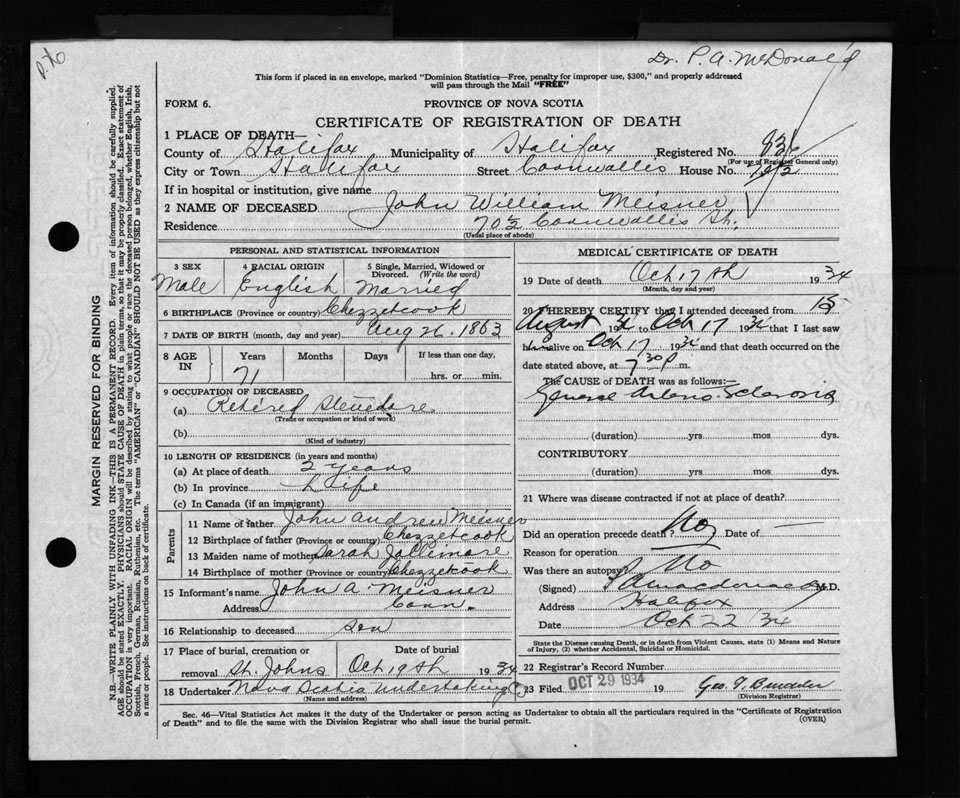 P.T.O
Dr. P. A. McDonald
This form if placed in an envelope, marked "Dominion Statistics—Free, penalty for improper use, $300," and properly addressed
will pass through the Mail "FREE"
FORM 6.
PROVINCE OF NOVA SCOTIA
CERTIFICATE OF REGISTRATION OF DEATH
1 PLACE OF DEATH—
County of Halifax Municipality of Halifax Registered No. 836
(For use of Registrar General only)
City or Town Halifax Street Cornwallis House No.
If in hospital or institution, give name
2 NAME OF DECEASED John William Meisner
Residence 70½ Cornwallis St.
(Usual place of abode)
PERSONAL AND STATISTICAL INFORMATION
3 SEX 4 RACIAL ORIGIN 5 Single, Married, Widowed or Divorced. (Write the word)
Male English Married
6 BIRTHPLACE (Province or country) Chezzetcook
7 DATE OF BIRTH (month, day and year) Aug 26. 1863
8 AGE IN Years Months Days If less than one day,
71 hrs. or min.
9 OCCUPATION OF DECEASED
(a) Retired Stevidore
(Trade or occupation or kind of work)
(b)
(Kind of industry)
10 LENGTH OF RESIDENCE (in years and months)
(a) At place of death 2 years
(b) In province Life
(c) In Canada (if an immigrant)
Parents
11 Name of father John Andrew Meisner
12 Birthplace of father (Province or country) Chezzetcook
13 Maiden name of mother Sarah Jollimore
14 Birthplace of mother (Province or country) Chezzetcook
15 Informant's name John A. Meisner
Address Conn.
16 Relationship to deceased Son
17 Place of burial, cremation or removal Date of burial
St. Johns Oct 19th 1934
18 Undertaker Nova Scotia Undertaking Co
(Name and address)
MEDICAL CERTIFICATE OF DEATH
19 Date of death Oct 17th 1934
(Month, day and year)
20 I HEREBY CERTIFY that I attended deceased from 15
August 1934 to Oct 17 1934 that I last saw
him alive on Oct 17 1934 and that death occurred on the
date stated above, at 7 30 p m.
The CAUSE of DEATH was as follows:—
General Arterio-Sclerosis
(duration) yrs mos dys.
CONTRIBUTORY
(duration) yrs. mos dys.
21 Where was disease contracted if not at place of death?
Did an operation precede death? No Date of —
Reason for operation
Was there an autopsy? No
(Signed) M.D.
Address Halifax
Date Oct 22/34
State the Disease causing Death, or in death from Violent Causes, state (1) Means and Nature
of Injury, (2) whether Accidental, Suicidal or Homicidal.
22 Registrar's Record Number
23 Filed OCT 29 1934 19 Geo. F.
(Division Registrar)
Sec. 46—Vital Statistics Act makes it the duty of the Undertaker or person acting as Undertaker to obtain all the particulars required in the "Certificate of Registration
of Death" and to file the same with the Division Registrar who shall issue the burial permit.
(OVER)
MARGIN RESERVED FOR BINDING
N.B.—WRITE PLAINLY WITH UNFADING INK—THIS IS A PERMANENT RECORD. Every item of information should be carefully supplied.
AGE should be stated EXACTLY. PHYSICIANS should STATE CAUSE OF DEATH in plain terms, so that it may be properly classified. Exact statement of
OCCUPATION is very important. RACIAL ORIGIN will be described by stating to what people or race the deceased person belonged, whether English, Irish,
Scottish, French, German, Russian, Ruthenian, etc. The terms "AMERICAN" or "CANADIAN" SHOULD NOT BE USED as they express citizenship but not
a race or people. See instructions on back of certificate.